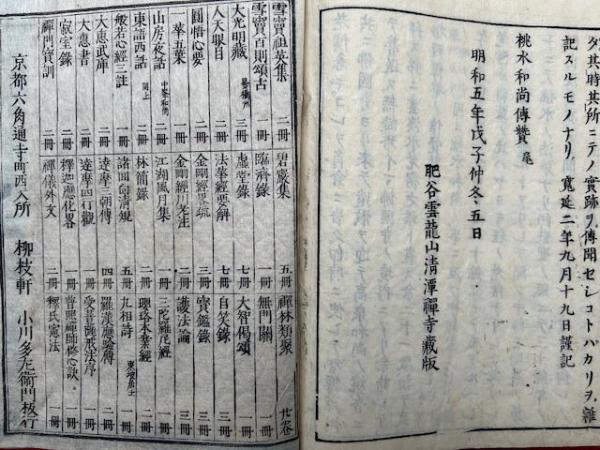 タ其時其所ニテノ實跡ヲ傳聞セシコトハカリヲ雜
記スルモノナリ 寛延二年九月十九日謹記
桃水和尚傳賛 尾
明和五年戊子仲冬五日
肥谷雲龍山清潭禪寺藏版
雪竇祖英集 二冊 碧巖集 五冊 禪林類聚 廿卷
雪竇百則頌古 一冊 臨濟録 一冊 無門關 一冊
大光明藏 三冊 虚堂録 七冊 大智偈頌 一冊
人天眼目 三冊 法華經要解 七冊 自笑録 三冊
圓悟心要 二冊 金剛經 三冊 寳鑑録 一冊
一華五葉 三冊 金剛經川老注 二冊 護法論 一冊
山房夜話 中峯和尚 江湖風月集 二冊 三陀羅尼經 一冊
東語西話 同上 二冊 林間録 二冊 瓔珞本業經 二冊
般若心經三註 一冊 諸回向清規 五冊 九相詩 東坡居士 一冊
大惠武庫 一冊 達摩三朝傳 四冊 羅漢應驗傳 一冊
大惠書 二冊 達摩四行觀 一冊 受菩薩戒法序 一冊
寂室録 二冊 釋迦應化畧 一冊 普照禪師修心訣 一冊
禪門寳訓 二冊 禪儀外文 二冊 釋氏憲法 一冊
京都六角通寺町西入所 柳枝軒 小川多左衛門板行